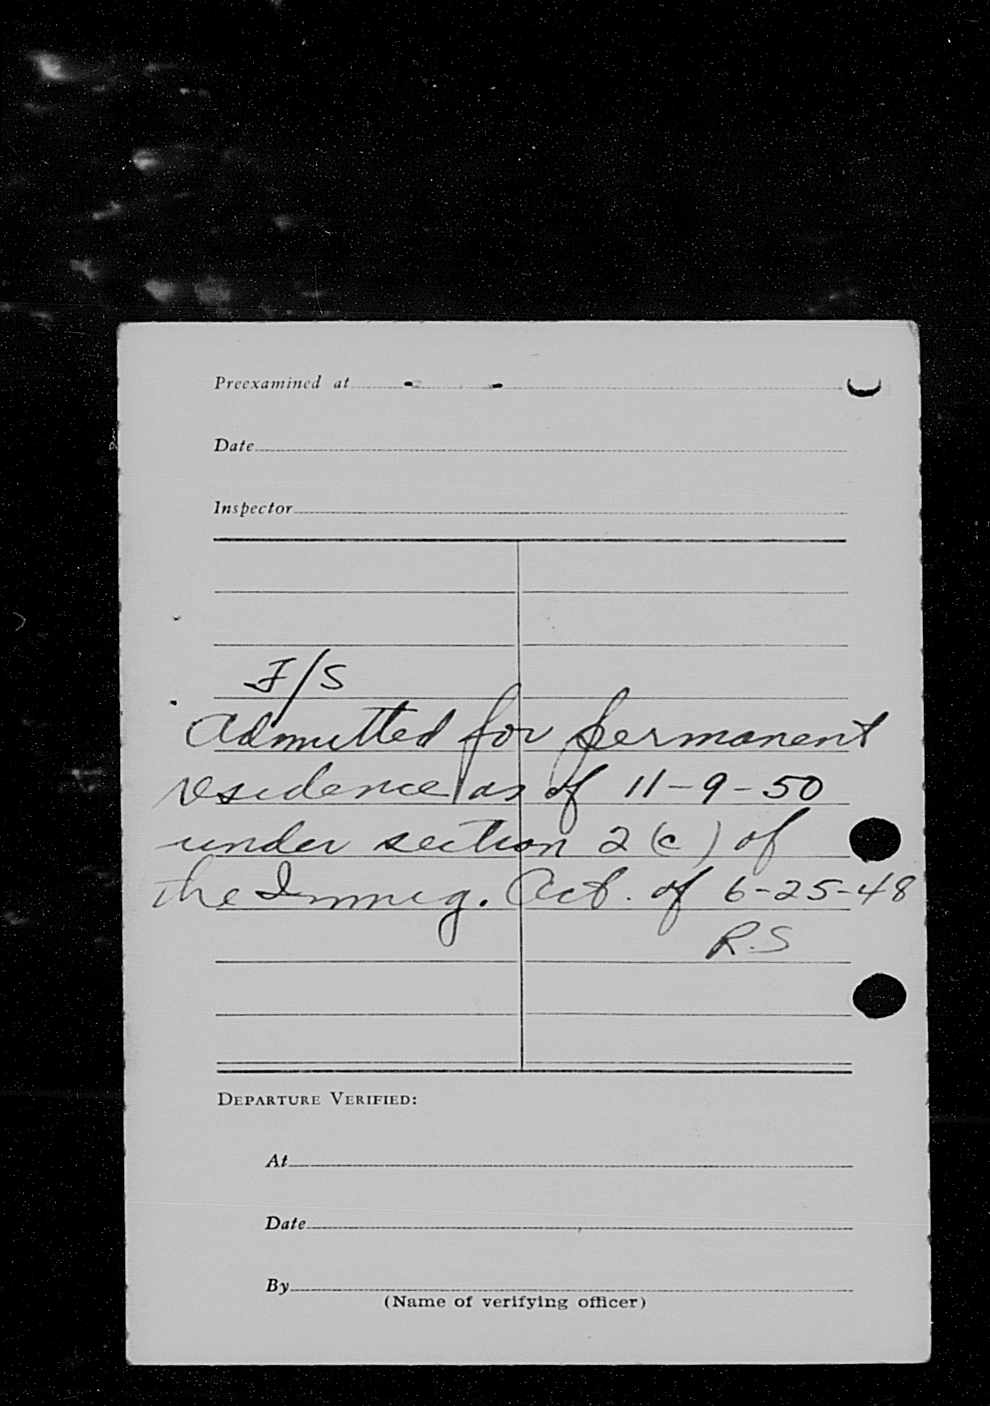 Preexamined at
Date
Inspector
F/S
Admitted for permanent
residence as of 11-9-50
under section 2(c) of
the Immig. Act. of 6-25-48
R.S
DEPARTURE VERIFIED:
At
Date
By
(Name of verifying officer)